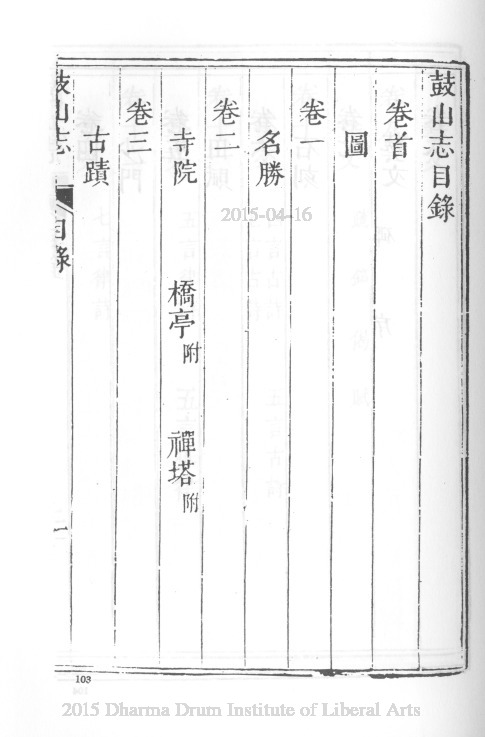 鼓山志目錄
卷首
圖
卷一
名勝
卷二
寺院 橋亭附 禪塔附
卷三
古蹟
鼓山志 目錄 一
2015-04-16
103
2015 Dharma Drum Institute of Liberal Arts